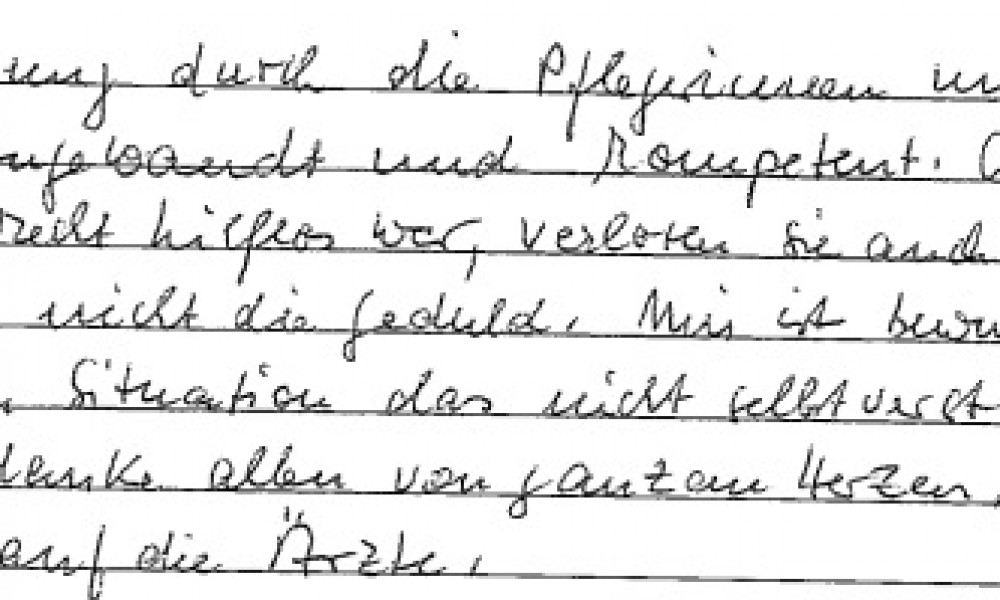 ung durch die Pflegerinnen un
ngewandt und kompetent.
recht hilflos war, verloren sie auch
nicht die Geduld. Mir ist bewu
Situation das nicht selbstverst
danke allen von ganzem Herzen,
auf die Ärzte.